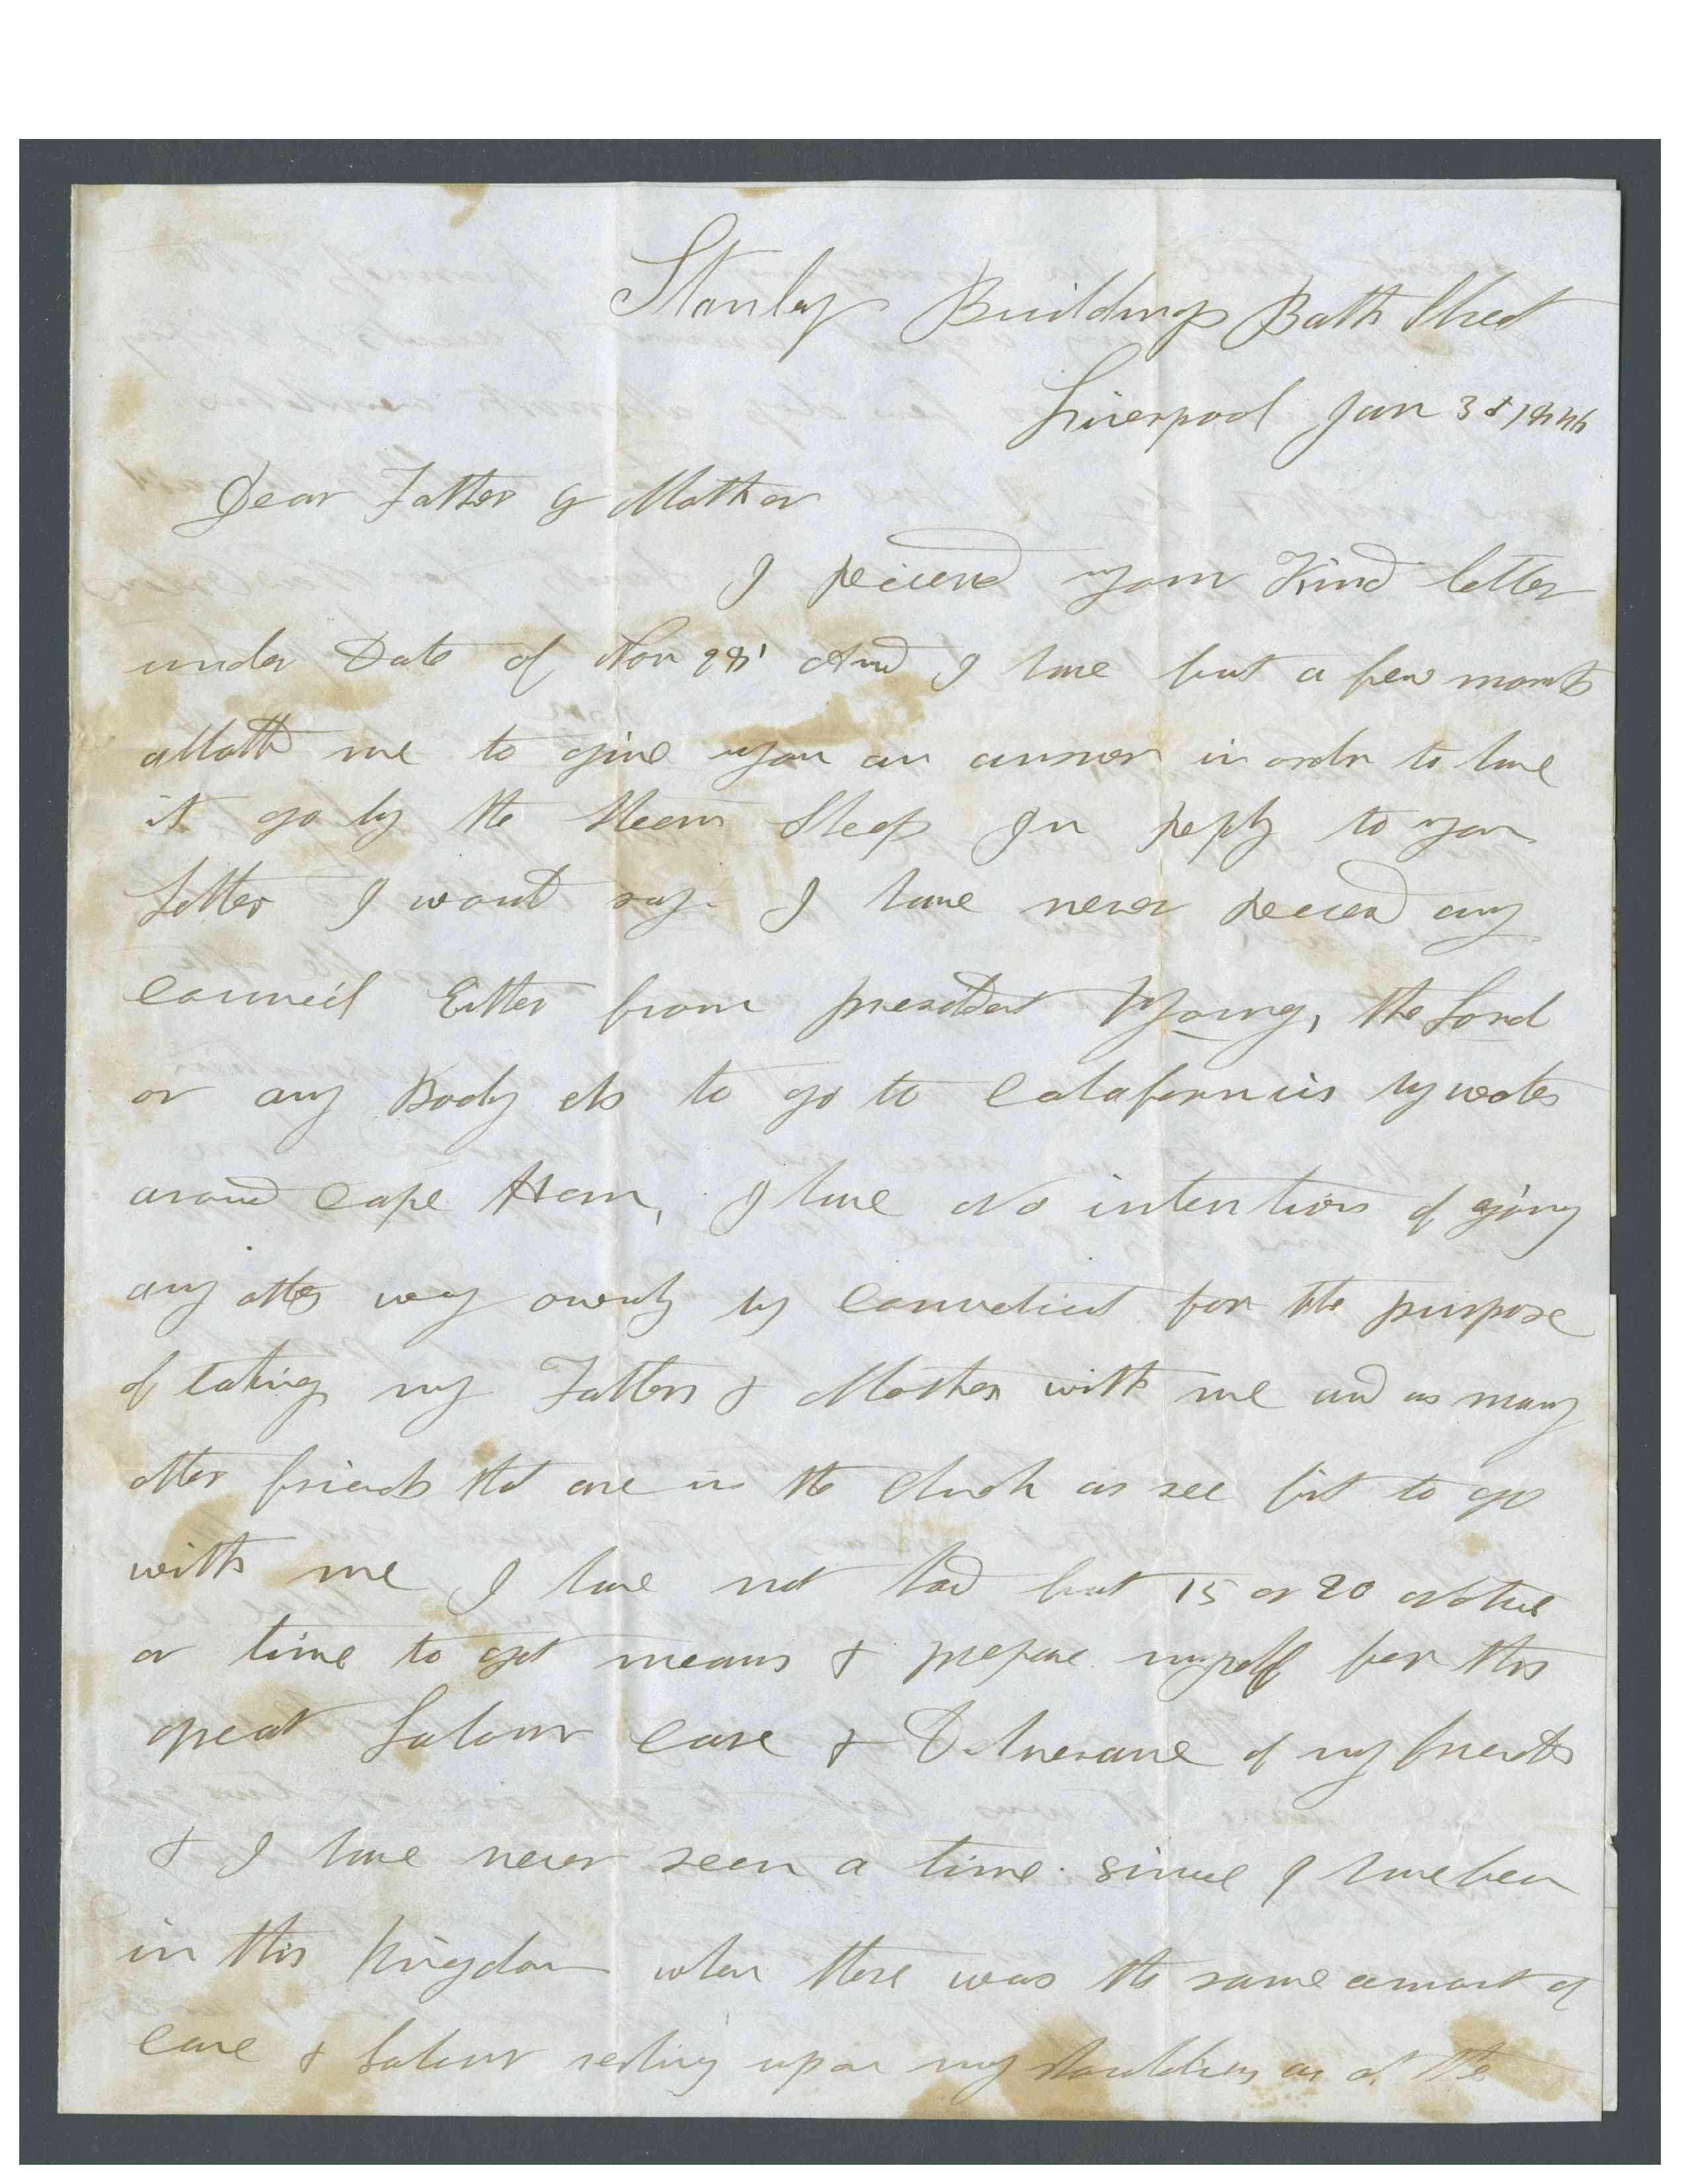 Stanley Buildings Bath Street
Liverpool Jan 3d 1846
Dear Father & Mother
I received your Kind letter
under Date of Nov 28t And I have but a few moments
allotted me to give you an answer in order to have
it go by the Steem Sheep In reply to your
Letter I would say. I have never received any
Council Either from president Young, the Lord
or any Body els to go to Calafornia by water
around Cape Horn, I have No intention of going
any other way ownly by Connecticut for the purpose
of taking my Father & Mother with me and as many
other friends that are in the Church as see fit to go
with me I have not had but 15 or 20 Notice
or time to get means & prepare myself for this
great Labour Care & Deliverance of my friends
& I have never seen a time since I have been
in this Kingdom when there was the same amount of
Care & Labour resting upon my shoulders as at the